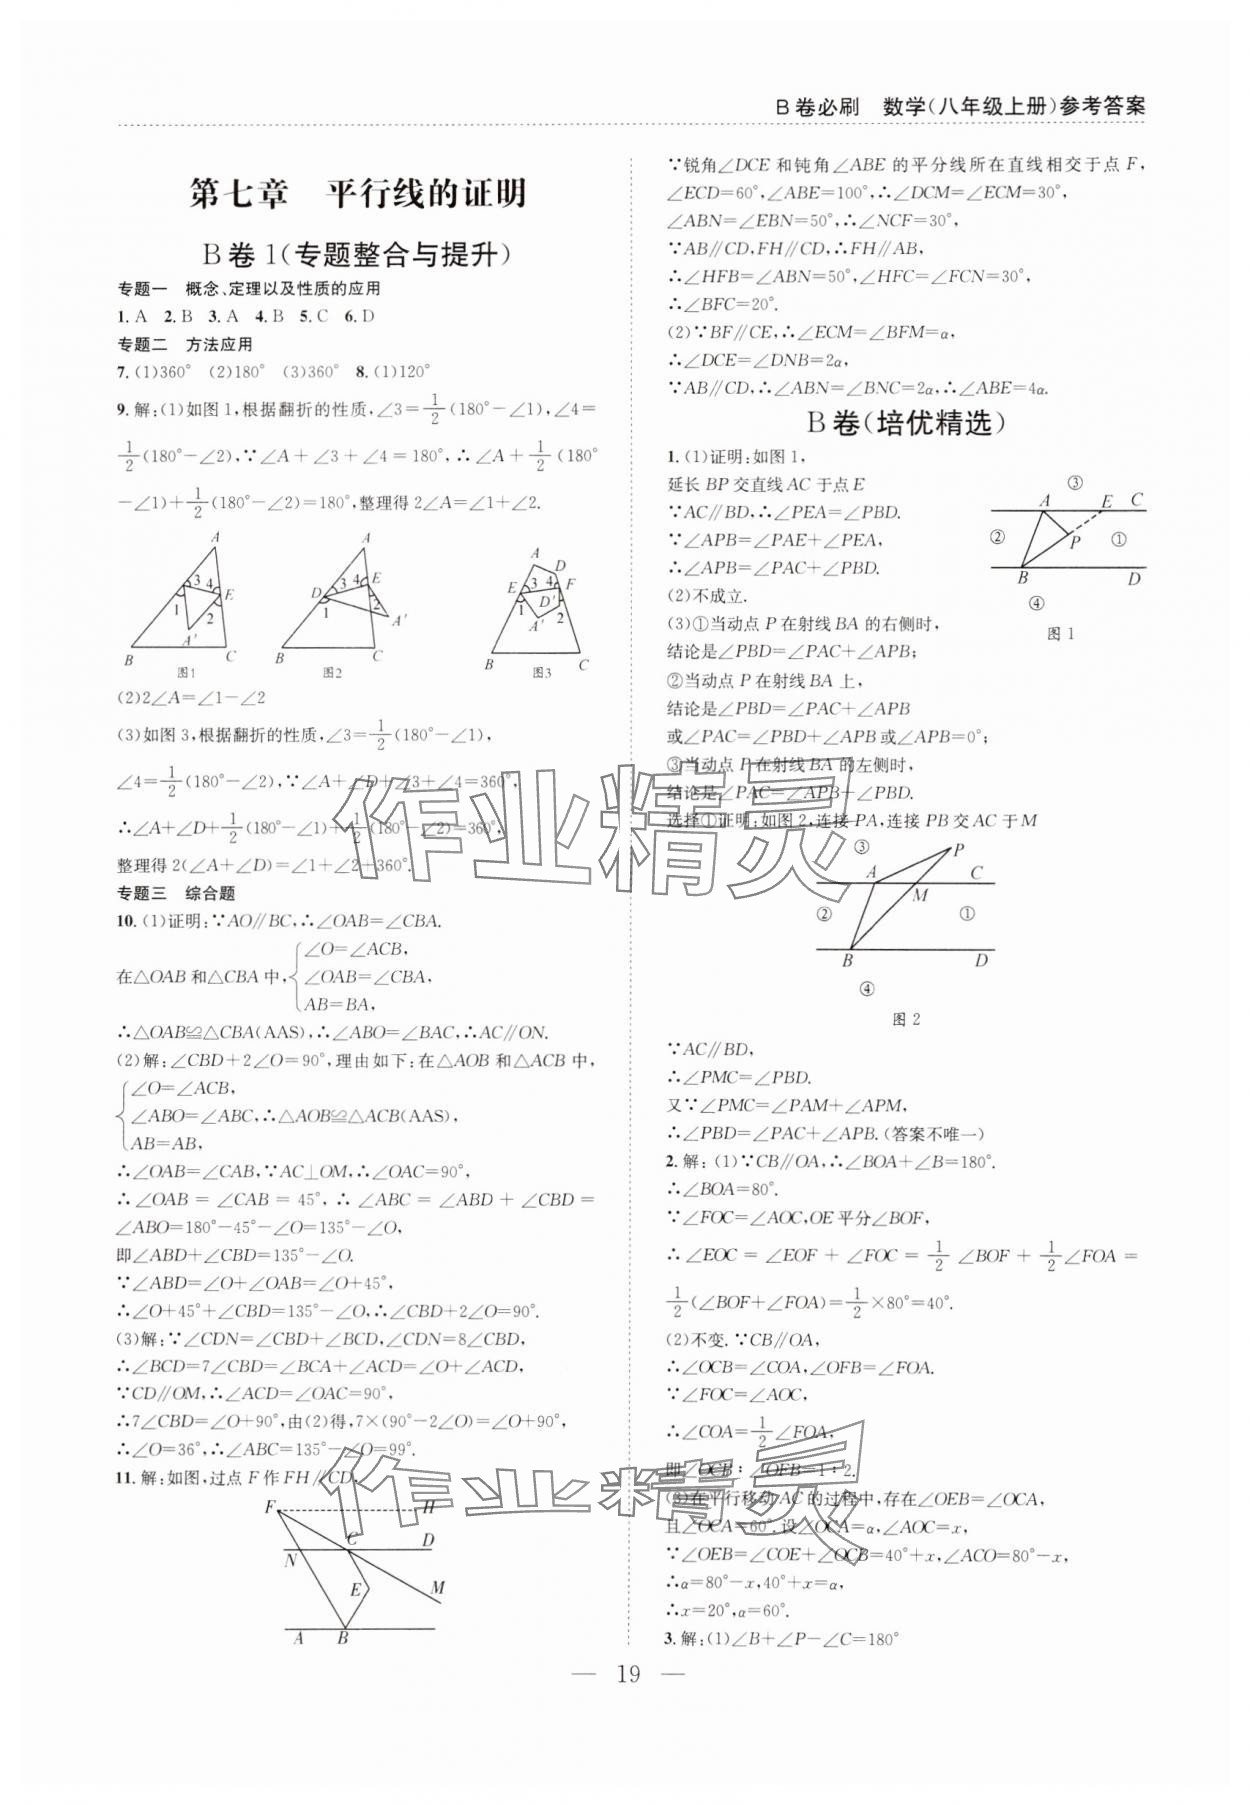 B卷必刷 数学(八年级上册)参考答案
第七章 平行线的证明
B卷1(专题整合与提升)
专题一 概念、定理以及性质的应用
1. A 2. B 3. A 4. B 5. C 6. D
专题二 方法应用
7. (1)360° (2)180° (3)360° 8. (1)120°
9. 解:(1)如图1,根据翻折的性质,∠3=1/2(180°-∠1),∠4=
1/2(180°-∠2),∵∠A+∠3+∠4=180°,∴∠A+1/2(180°
-∠1)+1/2(180°-∠2)=180°,整理得2∠A=∠1+∠2.
A 3 4 E 1 2 A' B C 图1
A D 3 4 E 1 2 A' B C 图2
A D E 3 4 F D' 1 2 A' B C 图3
(2)2∠A=∠1-∠2
(3)如图3,根据翻折的性质,∠3=1/2(180°-∠1),
∠4=1/2(180°-∠2),∵∠A+∠D+∠3+∠4=360°,
∴∠A+∠D+1/2(180°-∠1)+1/2(180°-∠2)=360°,
整理得2(∠A+∠D)=∠1+∠2+360°.
专题三 综合题
10. (1)证明:∵AO∥BC,∴∠OAB=∠CBA.
在△OAB和△CBA中,{∠O=∠ACB,
∠OAB=∠CBA,
AB=BA,
∴△OAB≌△CBA(AAS),∴∠ABO=∠BAC,∴AC∥ON.
(2)解:∠CBD+2∠O=90°,理由如下:在△AOB和△ACB中,
{∠O=∠ACB,
∠ABO=∠ABC,∴△AOB≌△ACB(AAS),
AB=AB,
∴∠OAB=∠CAB,∵AC⊥OM,∴∠OAC=90°,
∴∠OAB=∠CAB=45°,∴∠ABC=∠ABD+∠CBD=
∠ABO=180°-45°-∠O=135°-∠O,
即∠ABD+∠CBD=135°-∠O.
∵∠ABD=∠O+∠OAB=∠O+45°,
∴∠O+45°+∠CBD=135°-∠O,∴∠CBD+2∠O=90°.
(3)解:∵∠CDN=∠CBD+∠BCD,∠CDN=8∠CBD,
∴∠BCD=7∠CBD=∠BCA+∠ACD=∠O+∠ACD,
∵CD∥OM,∴∠ACD=∠OAC=90°,
∴7∠CBD=∠O+90°,由(2)得,7×(90°-2∠O)=∠O+90°,
∴∠O=36°,∴∠ABC=135°-∠O=99°.
11. 解:如图,过点F作FH∥CD,
F H N C D E M A B
∵锐角∠DCE和钝角∠ABE的平分线所在直线相交于点F,
∠ECD=60°,∠ABE=100°,∴∠DCM=∠ECM=30°,
∠ABN=∠EBN=50°,∴∠NCF=30°,
∵AB∥CD,FH∥CD,∴FH∥AB,
∴∠HFB=∠ABN=50°,∠HFC=∠FCN=30°,
∴∠BFC=20°.
(2)∵BF∥CE,∴∠ECM=∠BFM=α,
∴∠DCE=∠DNB=2α,
∵AB∥CD,∴∠ABN=∠BNC=2α,∴∠ABE=4α.
B卷(培优精选)
1. (1)证明:如图1,
延长BP交直线AC于点E
∵AC∥BD,∴∠PEA=∠PBD.
∵∠APB=∠PAE+∠PEA,
∴∠APB=∠PAC+∠PBD.
(2)不成立.
(3)①当动点P在射线BA的右侧时,
结论是∠PBD=∠PAC+∠APB;
②当动点P在射线BA上,
结论是∠PBD=∠PAC+∠APB
或∠PAC=∠PBD+∠APB或∠APB=0°;
③当动点P在射线BA的左侧时,
结论是∠PAC=∠APB+∠PBD.
③ A E C ② P ① B D ④ 图1
选择①证明:如图2,连接PA,连接PB交AC于M
③ P A C M ② ① B D ④ 图2
∵AC∥BD,
∴∠PMC=∠PBD.
又∵∠PMC=∠PAM+∠APM,
∴∠PBD=∠PAC+∠APB.(答案不唯一)
2. 解:(1)∵CB∥OA,∴∠BOA+∠B=180°.
∴∠BOA=80°.
∵∠FOC=∠AOC,OE平分∠BOF,
∴∠EOC=∠EOF+∠FOC=1/2∠BOF+1/2∠FOA=
1/2(∠BOF+∠FOA)=1/2×80°=40°.
(2)不变.∵CB∥OA,
∴∠OCB=∠COA,∠OFB=∠FOA.
∵∠FOC=∠AOC,
∴∠COA=1/2∠FOA,
即∠OCB∶∠OFB=1∶2.
(3)在平行移动AC的过程中,存在∠OEB=∠OCA,
且∠OCA=60°.设∠OCA=α,∠AOC=x,
∵∠OEB=∠COE+∠OCB=40°+x,∠ACO=80°-x,
∴α=80°-x,40°+x=α,
∴x=20°,α=60°.
3. 解:(1)∠B+∠P-∠C=180°
— 19 —
作业精灵
作业精灵